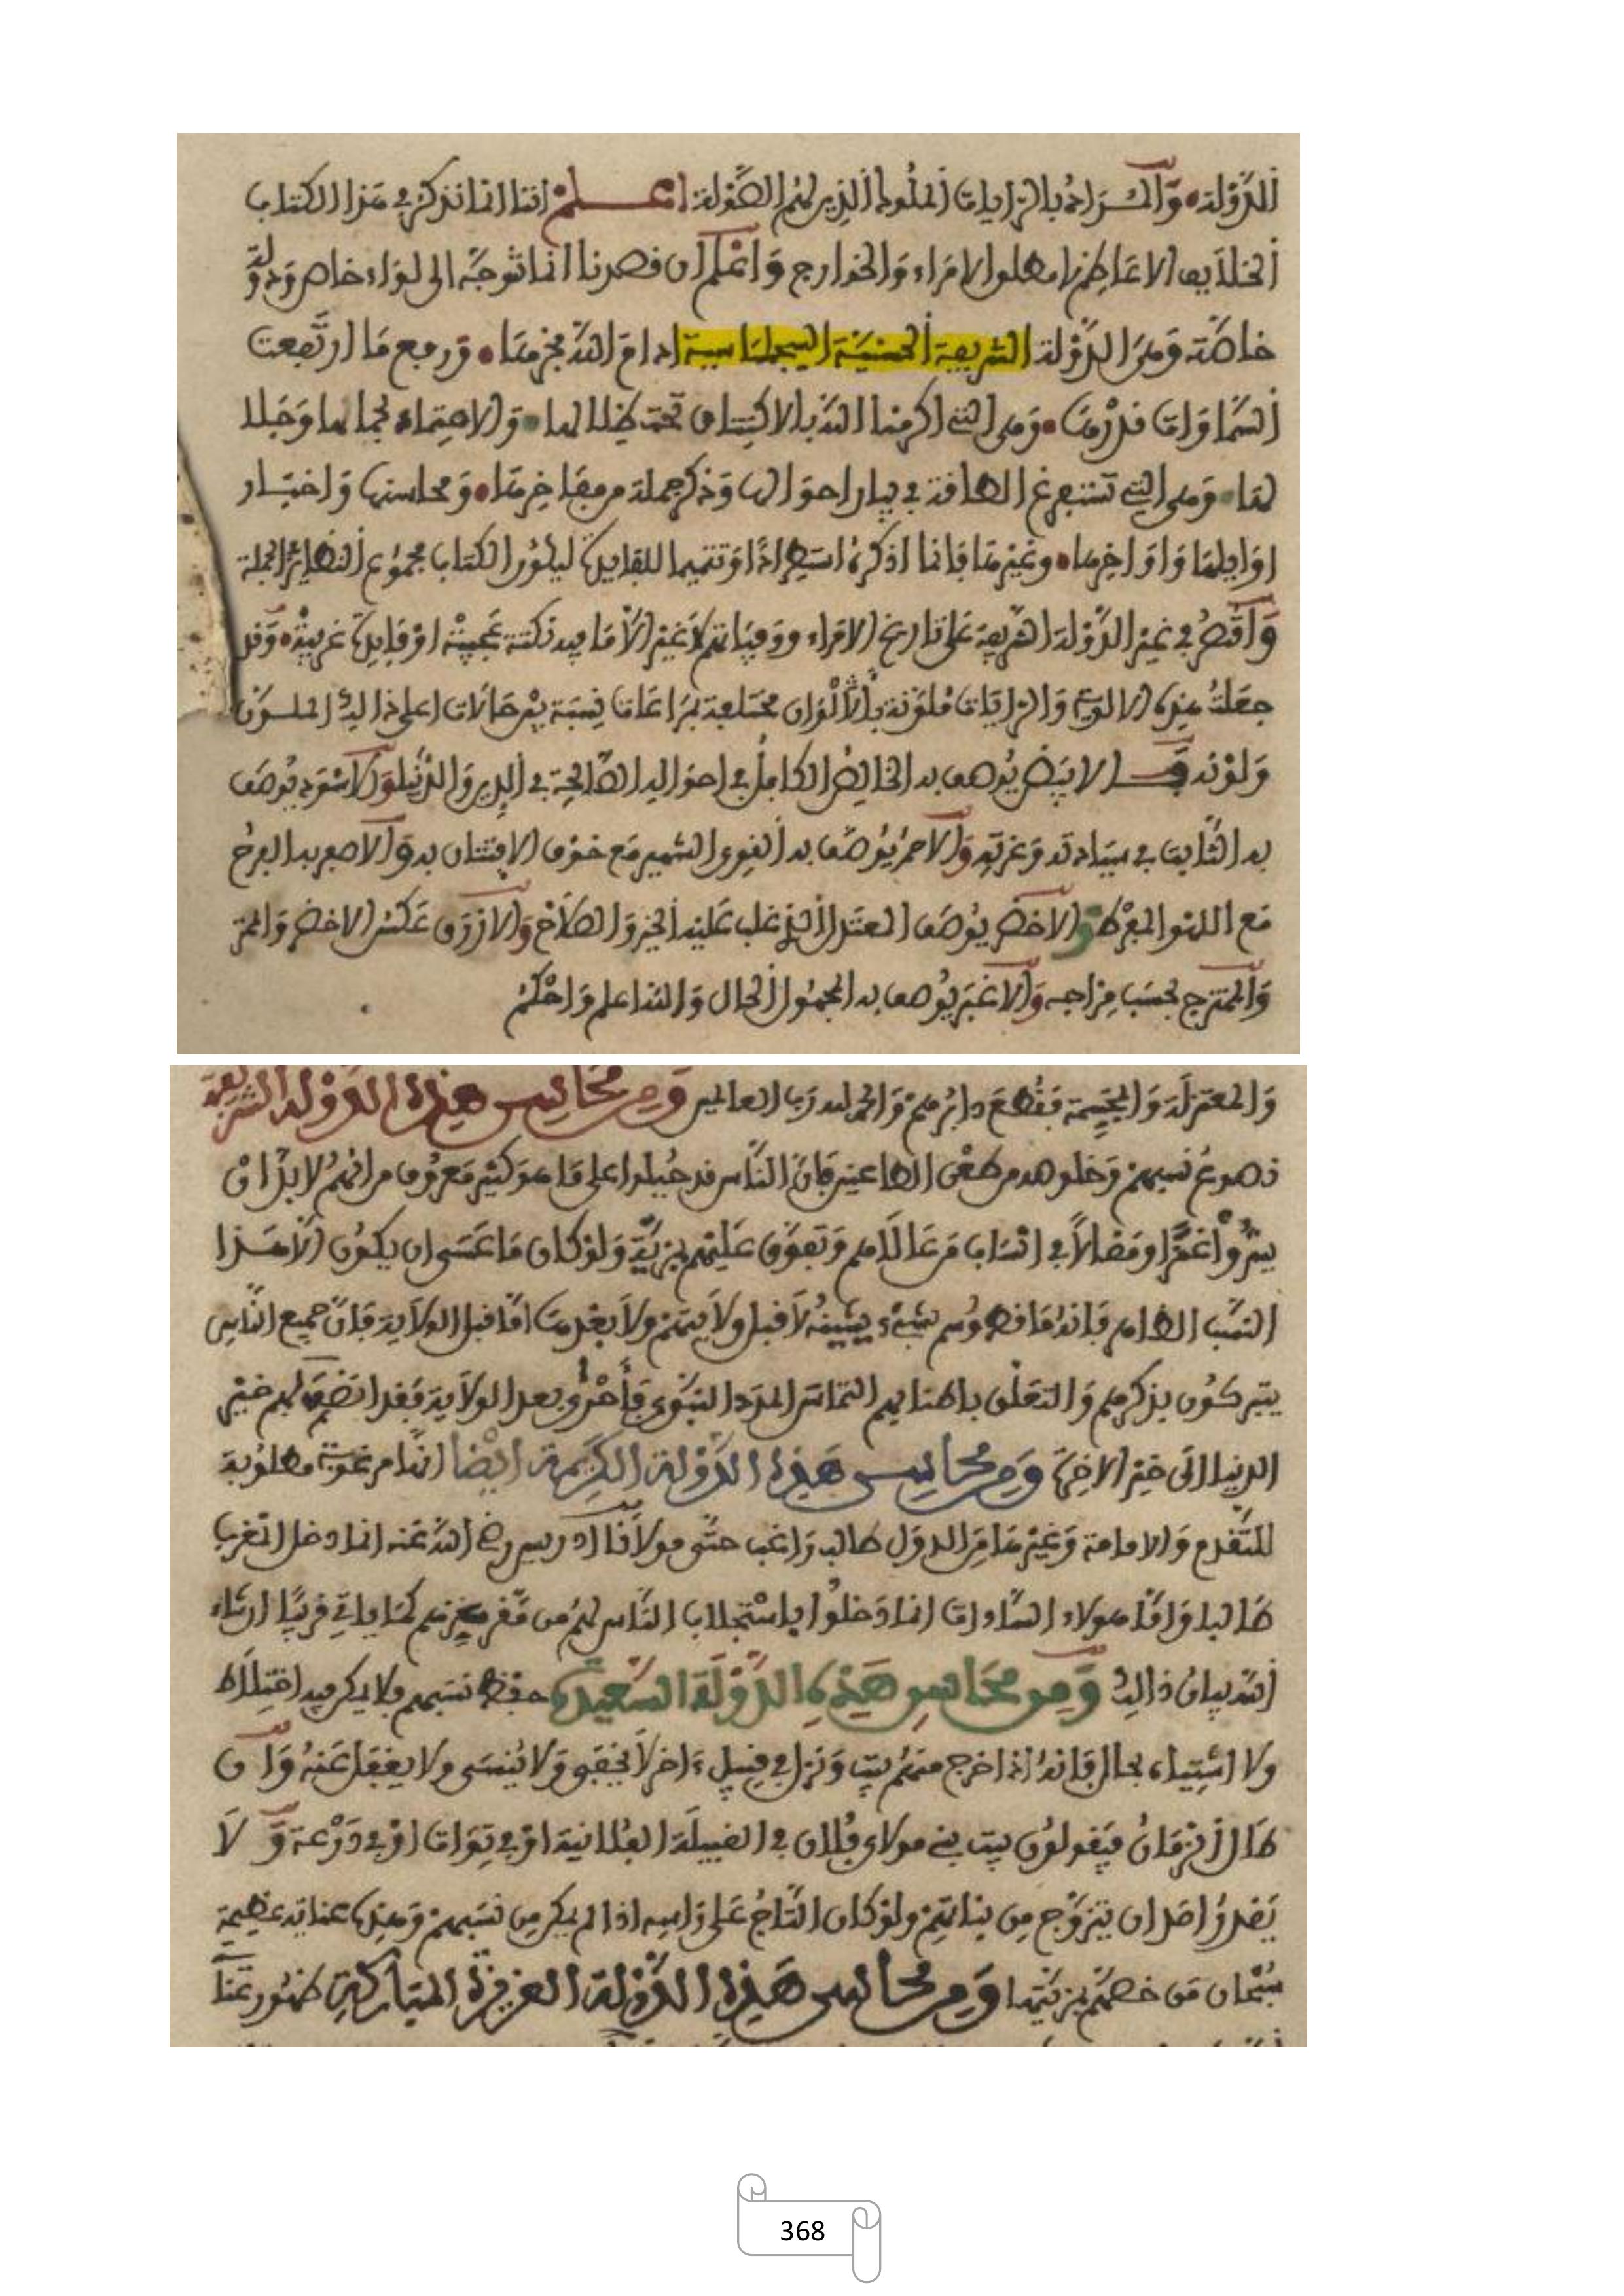 للدولة والمراد بالرايات الملوك الذين لهم الصولة اعلم اننا انما نذكر في هذا الكتاب
الخلايف الاعاظم لا مطلق الامراء والخوارج واعلم ان قصدنا انما توجه الى لواء خاص ودولة
خاصة وهى الدولة الشريفة الحسنية السجلماسية ادام الله مجدها ورفع ما ارتفعت
السماوات قدرها وهى التي اكرمنا الله بالاكتناف تحت ظلالها والاحتماء بجمالها وجلا
لها وهى التي نستفرغ الطاقة في بيان احوالها وذكر جملة من مفاخرها ومحاسنها واخبار
اوايلها واواخرها وغيرها فانما اذكره استطرادا وتتميما للفايدة ليكون الكتاب مجموع النظاير الجملة
واقتصر في غير الدولة الشريفة على تاريخ الامراء ووفياتهم لا غير الا ما فيه نكتة عجيبة او فايدة غريبة وقد
جعلت هذه الالوية والرايات ملونة بالالوان مختلفة بمراعات نسبة بين حالات اعلى ذالك الملون
ولونه فالابيض يوصف به الخالص الكامل في احواله الصالحة في الدين والدنيا والاسود يوصف
به الثابت في سيادته وعزته والاحمر يوصف به القوي الشهير مع خوف الافتتان به والاصفر به الفرح
مع اللهو المفرط والاخضر يوصف المعتدل الذي غلب عليه الخير والصلاح والازرق عكس الاخضر والممتز
والممتزج بحسب مزاجه والاغبر يوصف به المجهول الحال والله اعلم واحكم
والمعتزلة والمجسمة فقطع دابرهم والحمد لله رب العالمين ومن محاسن هذه الدولة الشريفة
نصوع نسبهم وخلوصه من طعن الطاعنين فان الناس قد جبلوا على ما هو كثير معروف من انهم لا بد ان
يبدوا غمزا ومقالا في انساب من عالاهم وتفوق عليهم بمزية ولو كان ما عسى ان يكون الا هذا
النسب الطاهر فانه ما قط وسم بشيء يشينه لا قبل ولايتهم ولا بعدها اما قبل الولاية فان جميع الناس
يتبركون بذكرهم والتعلق باطنابهم التماس المدد النبوي فاحرى بعد الولاية فقد انضم لهم خير
الدنيا الى خير الاخرة ومن محاسن هذه الدولة الكريمة ايضا انها مرغوبة مطلوبة
للتقدم والامامة وغيرها من الدول طالب راغب حتى مولانا ادريس رضي الله عنه انما دخل المغرب
طالبا واما هولاء السادات انما دخلوا باستجلاب الناس لهم من مقرهم كما ياتي قريبا ان شاء
الله بيان ذالك ومن محاسن هذه الدولة السعيدة حفظ نسبهم ولا يمكن فيه اختلاط
ولا اشتباه بحال فانه اذا خرج منهم بيت ونزل في قبيل ءاخر لا يخفى ولا ينسى ولا يغفل عنه وان
طال الزمان فيقولون بيت بني مولاي فلان في القبيلة الفلانية او في توات او في درعة ولا
يقدر احد ان يتزوج من بناتهم ولو كان التاج على راسه اذا لم يكن من نسبهم وهذه عناية عظيمة
سبحان من خصهم بمزيتها ومن محاسن هذه الدولة العزيزة المباركة ظهور
368